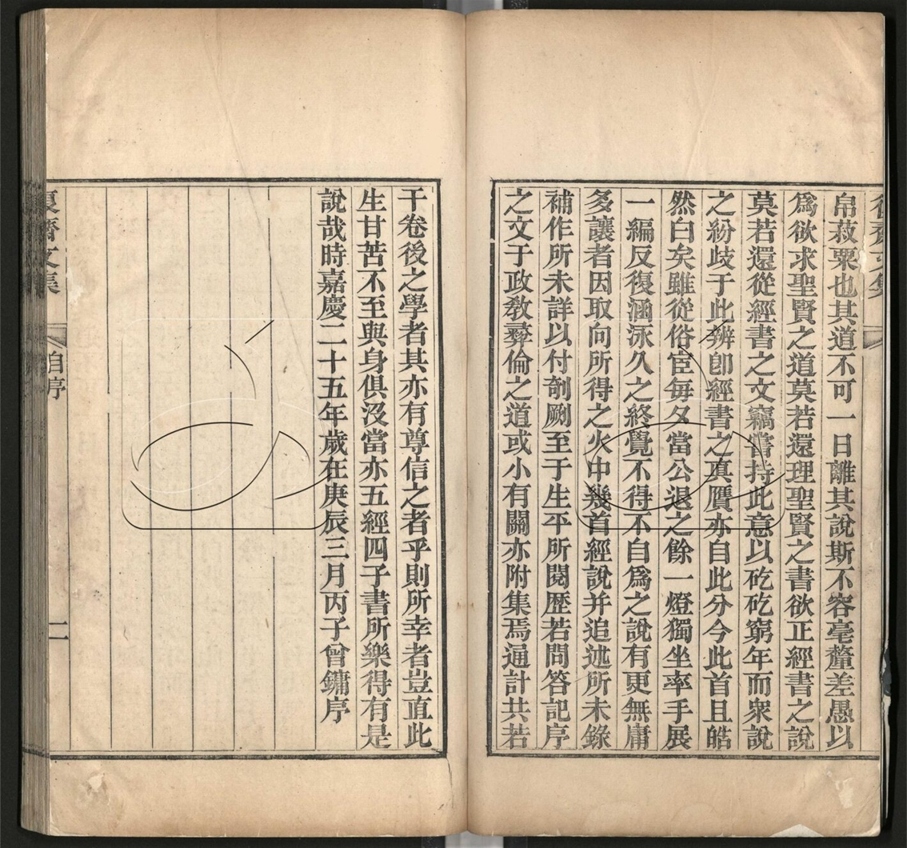 帛菽粟也其道不可一日離其說斯不容毫釐差愚以
爲欲求聖賢之道莫若還理聖賢之書欲正經書之說
莫若還從經書之文竊嘗持此意以矻矻窮年而衆說
之紛歧于此辨卽經書之真贋亦自此分今此首且皓
然白矣雖從俗宦每夕當公退之餘一燈獨坐率手展
一編反復涵泳久之終覺不得不自爲之說有更無庸
多讓者因取向所得之火中幾首經說并追述所未錄
補作所未詳以付剞劂至于生平所閱歷若問答記序
之文于政敎彝倫之道或小有關亦附集焉通計共若
干卷後之學者其亦有尊信之者乎則所幸者豈直此
生甘苦不至與身俱沒當亦五經四子書所樂得有是
說哉時嘉慶二十五年歲在庚辰三月丙子曾鏞序
復齋文集
自序
二